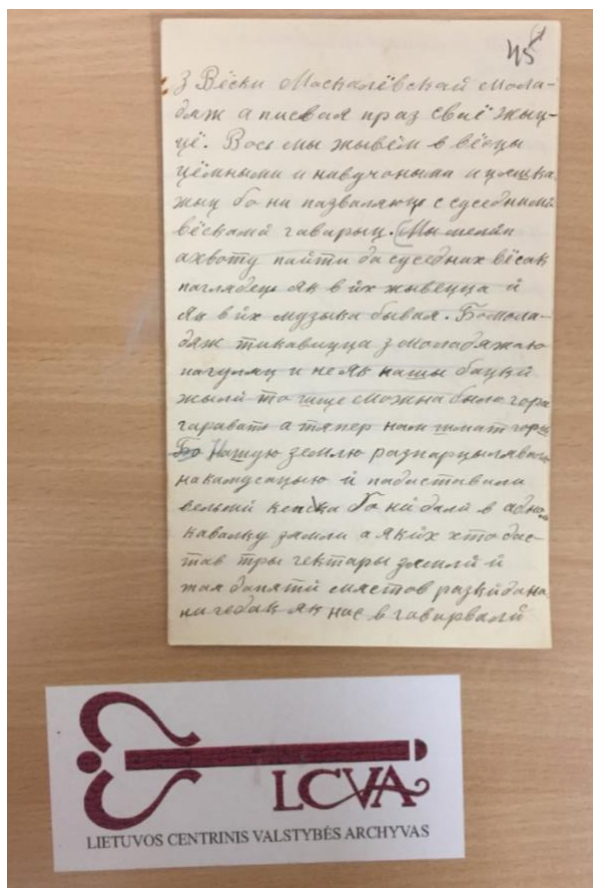 45
З Вёски Маскалёвскай мола-
дяж аписвая праз сваё жыц-
цё. Вось мы жывём в вёсцы
цёмными и навучоными и цяшка
жыц бо ни пазваляюць с суседними
вёсками гаварыц. Мы мелиб
ахвоту пайти да суседних вёсак
паглядець як в йх жывецца й
як в йх музыка бывая. Бо мола-
дяж тикавицца з моладяжаю
пагуляц и не як нашы бацки
жыли то ище можна было гора
гараваць а тяпер нам шмат горш
Бо Нашую землю разпарцылявали
на камусацыю й падиставали
вельми кепска бо ни дали в адном
кавалку зямли а яких хто дас-
тав тры гектары зямли й
тая да пяти мястов разкидана
ни гедак як нас в гаварвали
LCVA
LIETUVOS CENTRINIS VALSTYBĖS ARCHYVAS